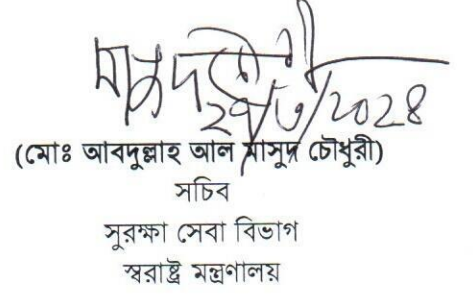 (মোঃ আবদুল্লাহ আল মাসুদ চৌধুরী)
সচিব
সুরক্ষা সেবা বিভাগ
স্বরাষ্ট্র মন্ত্রণালয়